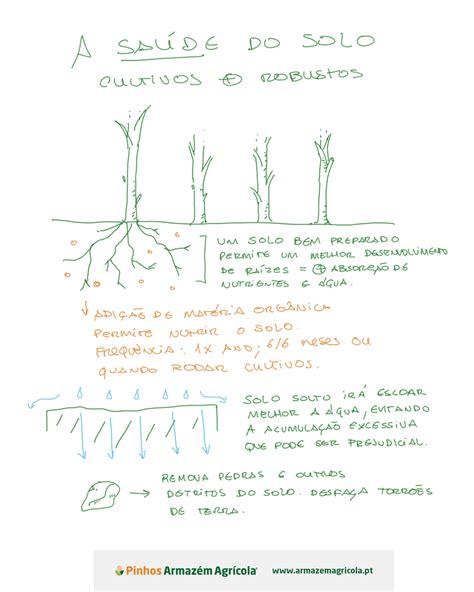 A SAÚDE DO SOLO
CULTIVOS ⊕ ROBUSTOS
UM SOLO BEM PREPARADO
PERMITE UM MELHOR DESENVOLVIMENTO
DE RAÍZES = ⊕ ABSORÇÃO DE
NUTRIENTES E ÁGUA.
ADIÇÃO DE MATÉRIA ORGÂNICA
PERMITE NUTRIR O SOLO.
FREQUÊNCIA: 1X ANO, 6/6 MESES OU
QUANDO RODAR CULTIVOS.
SOLO SOLTO IRÁ ESCOAR
MELHOR A ÁGUA, EVITANDO
A ACUMULAÇÃO EXCESSIVA
QUE PODE SER PREJUDICIAL.
REMOVA PEDRAS E OUTROS
DETRITOS DO SOLO. DESFAÇA TORRÕES
DE TERRA.
Pinhos Armazém Agrícola® www.armazemagricola.pt